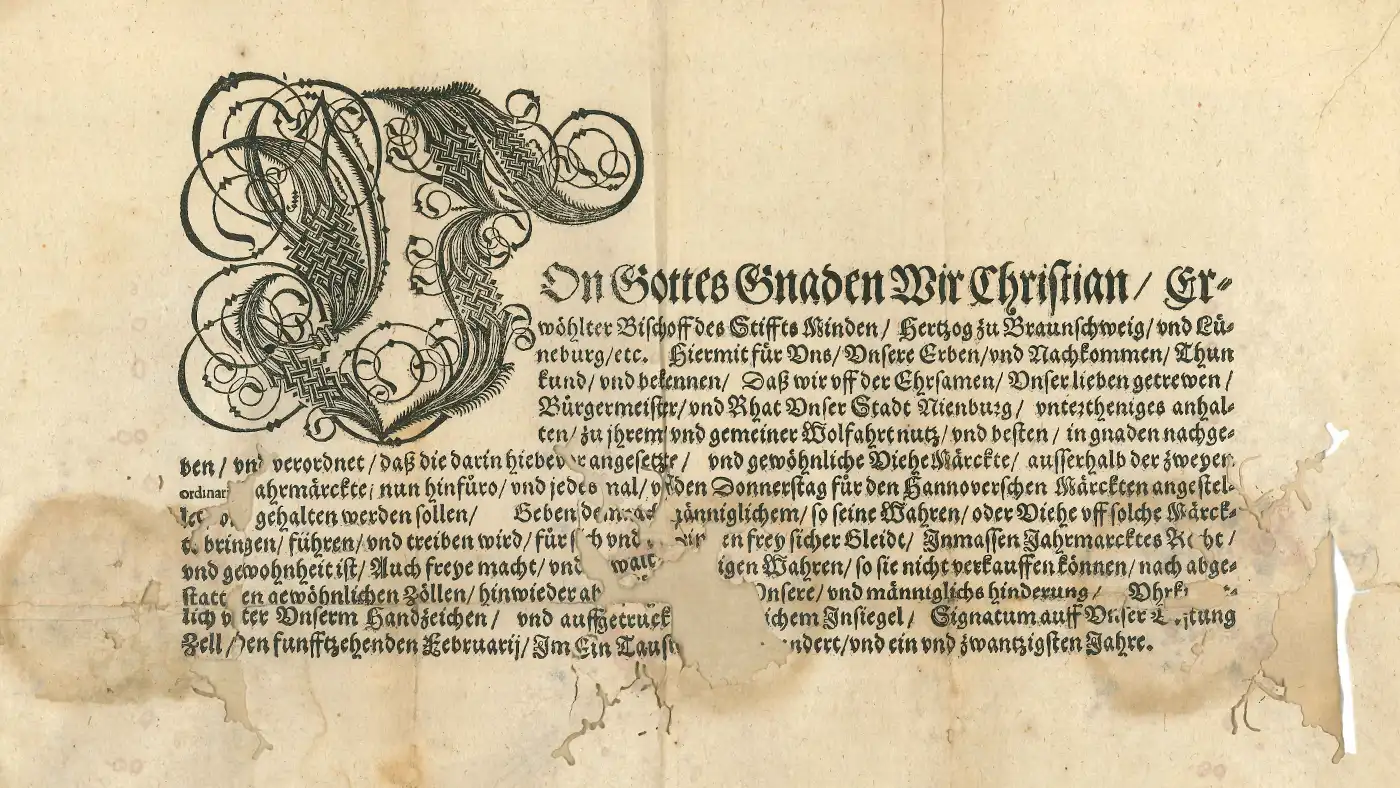 VOn Gottes Gnaden Wir Christian / Er-
wöhlter Bischoff des Stiffts Minden / Hertzog zu Braunschweig / vnd Lü-
neburg / etc. Hiermit für Vns / Vnsere Erben / vnd Nachkommen / Thun
kund / vnd bekennen / Daß wir vff der Ehrsamen / Vnser lieben getrewen /
Bürgermeister / vnd Rhat Vnser Stadt Nienburg / vntertheniges anhal-
ten / zu jhrem vnd gemeiner Wolfahrt nutz / vnd besten / in gnaden nachge-
ben / vnd verordnet / daß die darin hiebevor angesetzte / vnd gewöhnliche Viehe Märckte / ausserhalb der zweyen
ordinari ahrmärckte / nun hinfüro / vnd jedes mal / vff den Donnerstag für den Hannoverschen Märckten angestel-
gehalten werden sollen / Geben männiglichem / so seine Wahren / oder Viehe vff solche Märck-
bringen / führen / vnd treiben wird / für sich vnd en frey sicher Gleidt / Inmassen Jahrmarcktes Recht /
vnd gewohnheit ist / Auch freye macht / vnd igen Wahren / so sie nicht verkauffen können / nach abge-
statt en gewöhnlichen Zöllen / hinwieder ab Vnsere / vnd männiglichs hinderung /
lich vnter Vnserm Handzeichen / vnd auffgetrück lichem Insiegel / Signatum auff Vnser
Zell / den funfftzehenden Februarij / Im Ein Taus ndert / vnd ein vnd zwantzigsten Jahre.